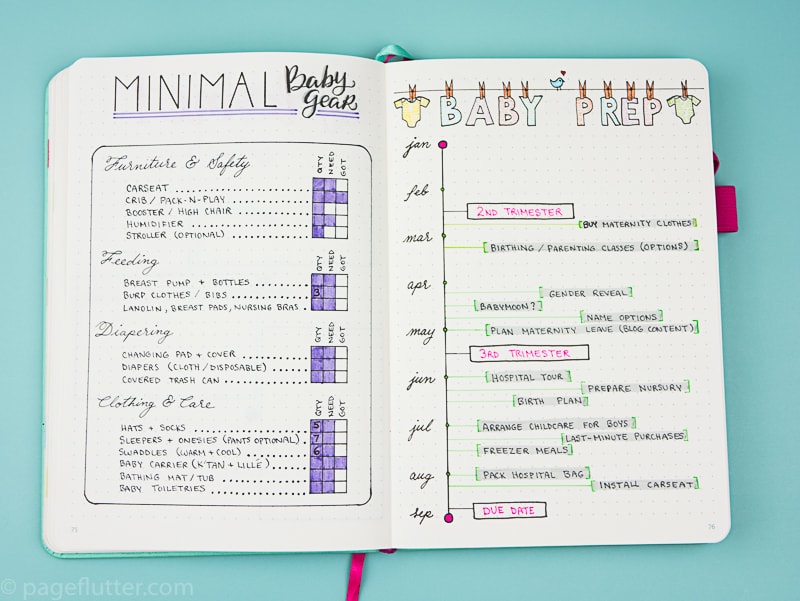 MINIMAL Baby GEAR
Furniture & Safety
QTY NEED GOT
CARSEAT
CRIB / PACK-N-PLAY
BOOSTER / HIGH CHAIR
HUMIDIFIER
STROLLER (OPTIONAL)
Feeding
QTY NEED GOT
BREAST PUMP + BOTTLES
BURP CLOTHES / BIBS 3
LANOLIN, BREAST PADS, NURSING BRAS
Diapering
QTY NEED GOT
CHANGING PAD + COVER
DIAPERS (CLOTH / DISPOSABLE)
COVERED TRASH CAN
Clothing & Care
QTY NEED GOT
HATS + SOCKS 5
SLEEPERS + ONESIES (PANTS OPTIONAL) 7
SWADDLES (WARM + COOL) 6
BABY CARRIER (K'TAN + LILLE)
BATHING MAT / TUB
BABY TOILETRIES
75
BABY PREP
jan
feb
2ND TRIMESTER
BUY MATERNITY CLOTHES
mar
BIRTHING / PARENTING CLASSES (OPTIONS)
apr
GENDER REVEAL
BABYMOON?
NAME OPTIONS
may
PLAN MATERNITY LEAVE (BLOG CONTENT)
3RD TRIMESTER
jun
HOSPITAL TOUR
PREPARE NURSURY
BIRTH PLAN
jul
ARRANGE CHILDCARE FOR BOYS
LAST-MINUTE PURCHASES
FREEZER MEALS
aug
PACK HOSPITAL BAG
INSTALL CARSEAT
sep
DUE DATE
76
© pageflutter.com